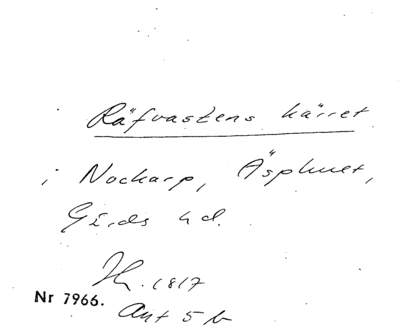 Räfvastens kärret
i Nockarp, Äsphult,
Gärds hd.
Jh. 1817
Nr 7966.
Akt 5 b